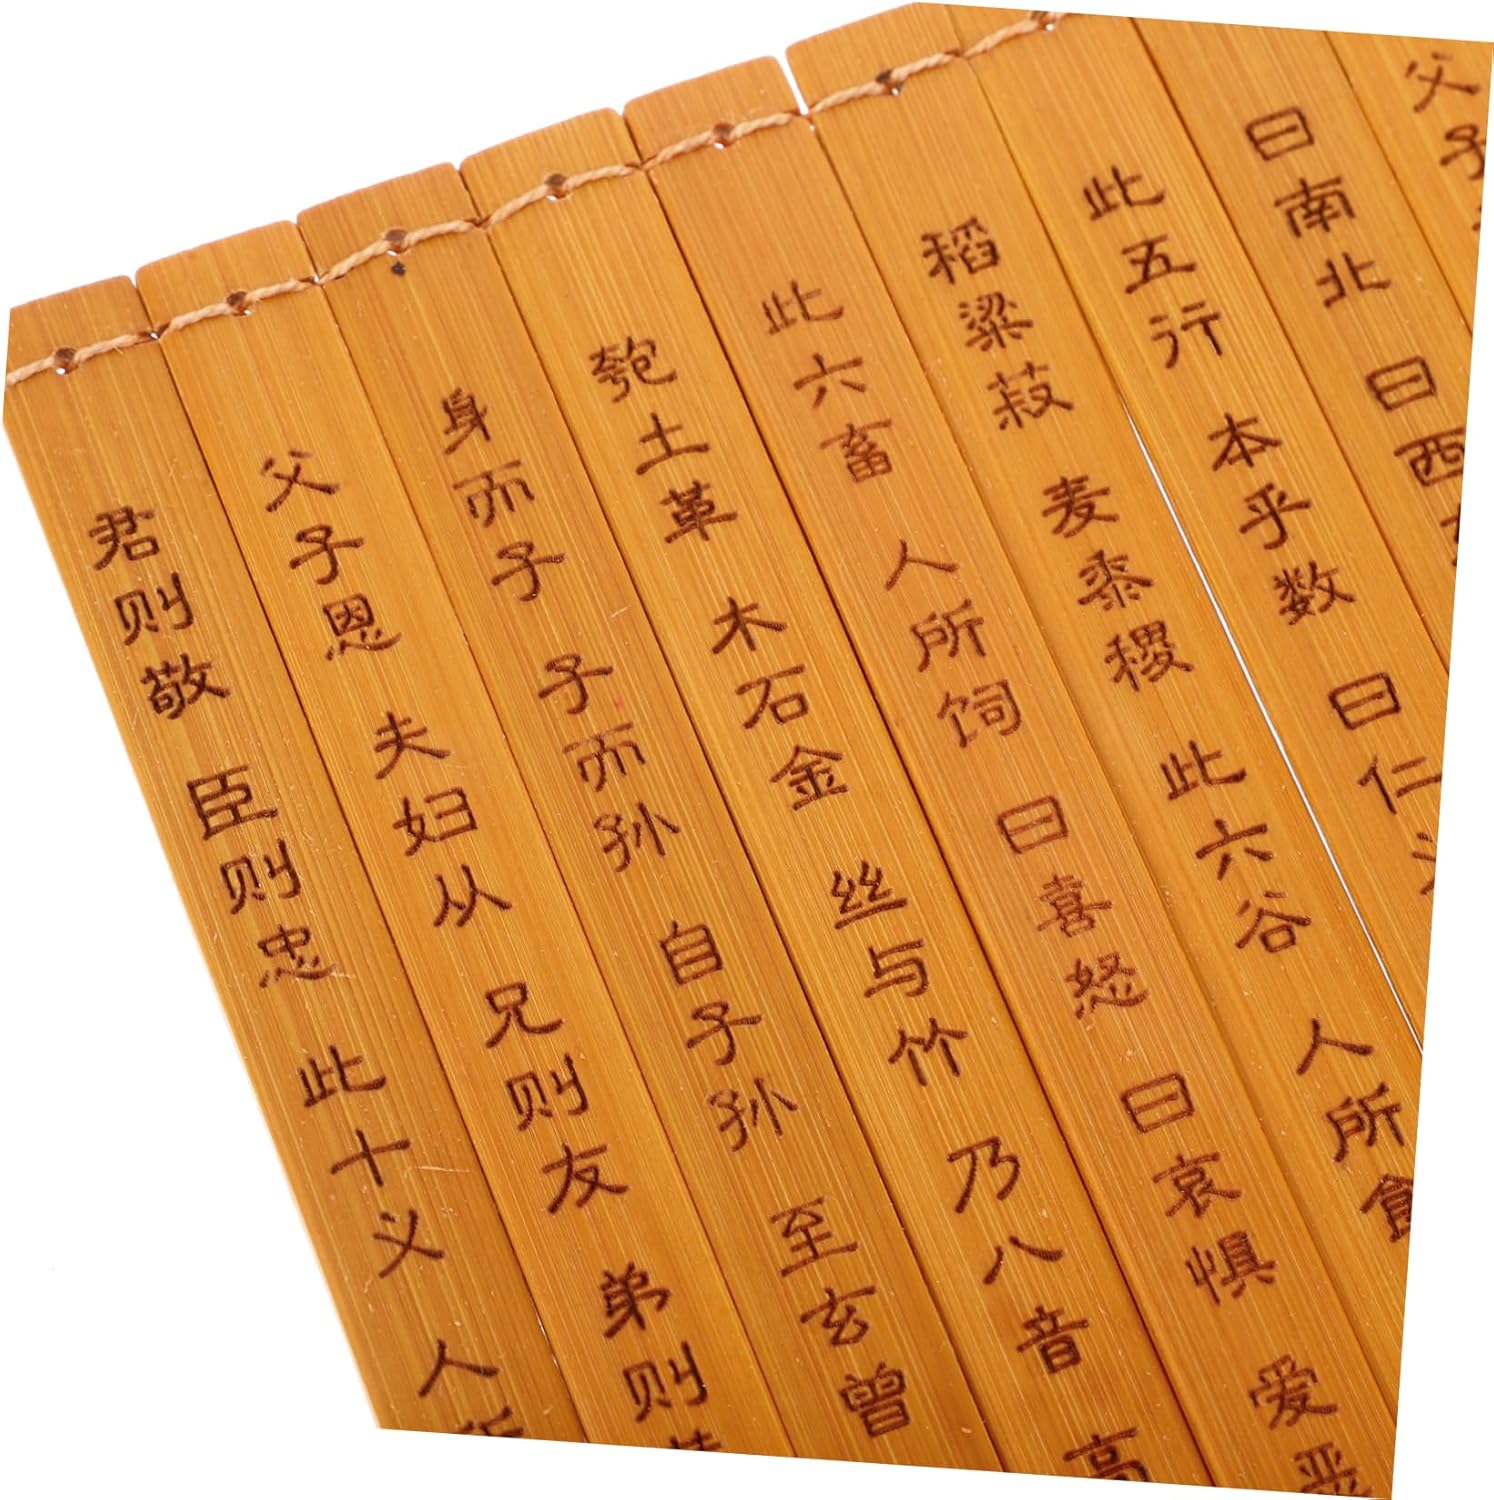 父子
曰南北 曰西
此五行 本乎数 曰仁
稻粱菽 麦黍稷 此六谷 人所食
此六畜 人所饲 曰喜怒 曰哀惧 爱恶
匏土革 木石金 丝与竹 乃八音 高
身而子 子而孙 自子孙 至玄曾
父子恩 夫妇从 兄则友 弟则
君则敬 臣则忠 此十义 人所